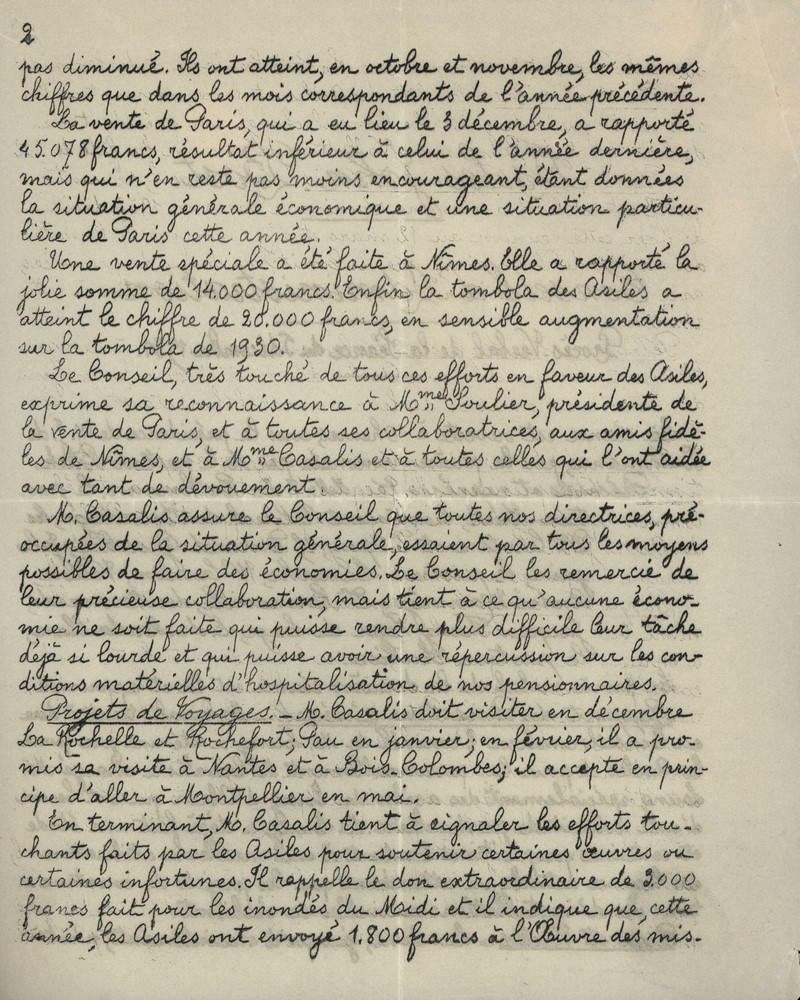 2
pas diminué. Ils ont atteint, en octobre et novembre, les mêmes
chiffres que dans les mois correspondants de l'année précédente.
La vente de Paris, qui a eu lieu le 3 décembre, a rapporté
45.078 francs, résultat inférieur à celui de l'année dernière,
mais qui n'en reste pas moins encourageant, étant données
la situation générale économique et une situation particu-
lière de Paris cette année.
Une vente spéciale a été faite à Nîmes. Elle a rapporté la
jolie somme de 14.000 francs. Enfin la tombola des Asiles a
atteint le chiffre de 20.000 francs, en sensible augmentation
sur la tombola de 1930.
Le Conseil, très touché de tous ces efforts en faveur des Asiles,
exprime sa reconnaissance à Mme Soulier, présidente de
la vente de Paris, et à toutes ses collaboratrices, aux amis fidè-
les de Nîmes, et à Mme Casalis et à toutes celles qui l'ont aidée
avec tant de dévouement.
M. Casalis assure le Conseil que toutes nos directrices, pré-
occupées de la situation générale, essaient par tous les moyens
possibles de faire des économies. Le Conseil les remercie de
leur précieuse collaboration, mais tient à ce qu'aucune écono-
mie ne soit faite qui puisse rendre plus difficile leur tâche
déjà si lourde et qui puisse avoir une répercussion sur les con-
ditions matérielles d'hospitalisation de nos pensionnaires.
Projets de Voyages. _ M. Casalis doit visiter en décembre
La Rochelle et Rochefort; Pau en janvier; en février, il a pro-
mis sa visite à Nantes et à Bois-Colombes; il accepte en prin-
cipe d'aller à Montpellier en mai.
En terminant, M. Casalis tient à signaler les efforts tou-
chants faits par les Asiles pour soutenir certaines œuvres ou
certaines infortunes. Il rappelle le don extraordinaire de 3.000
francs fait pour les inondés du Midi et il indique que, cette
année, les Asiles ont envoyé 1.800 francs à l'Œuvre des mis-